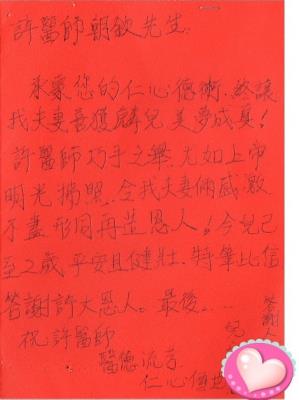 許醫師朝欽先生:
承蒙您的仁心德術、終讓
我夫妻喜獲麟兒 美夢成真!
許醫師巧手之舉,尤如上帝
明光揚照、令我夫妻倆感激
不盡 形同再造恩人!今兒已
至2歲 平安且健壯、特筆比信
答謝許大恩人。最後...
祝許醫師
醫德流芳
仁心傳世
答謝人
兒